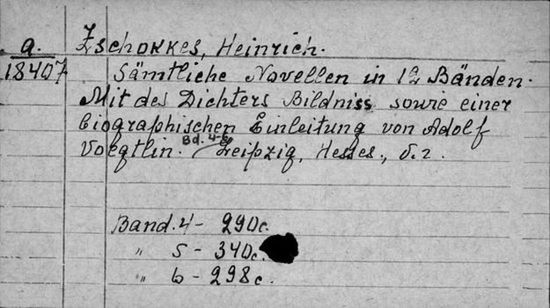 a. Zschokkes, Heinrich.
18407 Sämtliche Novellen in 12 Bänden.
Mit des Dichters Bildniss sowie einer
biographischen Einleitung von Adolf
Voegtlin. Bd. 4-6 Leipzig, Hesses., o.J.
Band. 4 - 290c.
„ 5 - 340c.
„ 6 - 298c.